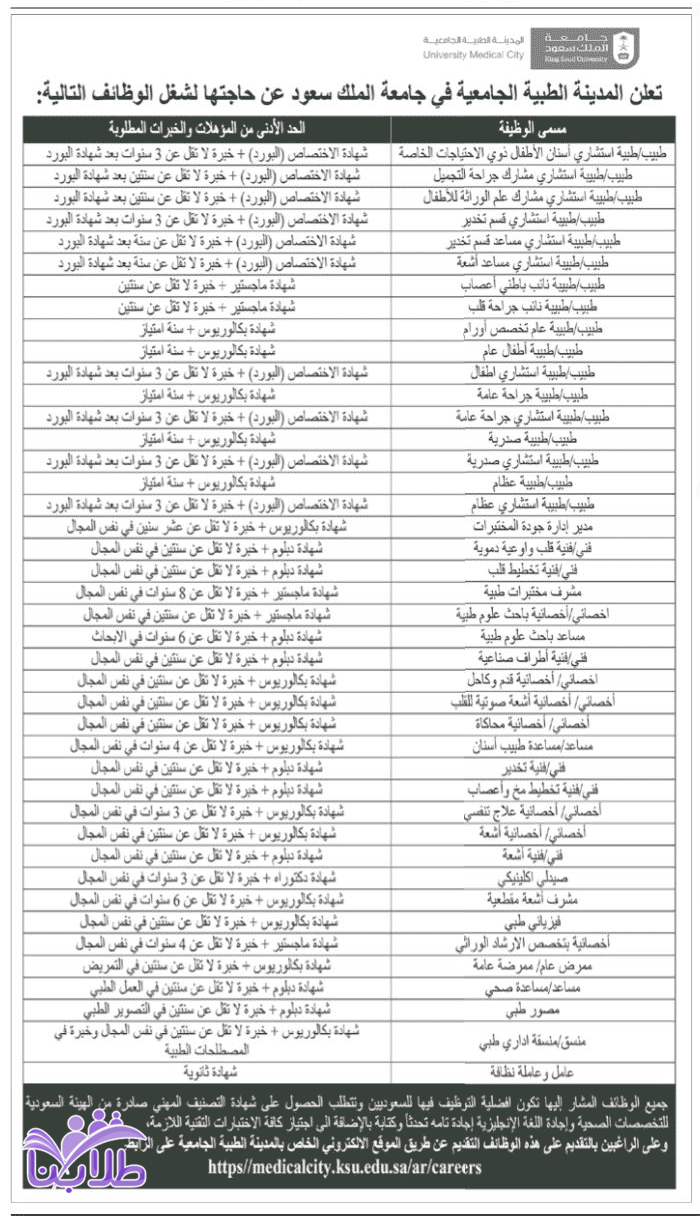 المدينة الطبية الجامعية
University Medical City
جامعة
الملك سعود
King Saud University
تعلن المدينة الطبية الجامعية في جامعة الملك سعود عن حاجتها لشغل الوظائف التالية:
مسمى الوظيفة الحد الأدنى من المؤهلات والخبرات المطلوبة
طبيب/طبية استشاري أسنان الأطفال ذوي الاحتياجات الخاصة شهادة الاختصاص (البورد) + خبرة لا تقل عن 3 سنوات بعد شهادة البورد
طبيب/طبيبة استشاري مشارك جراحة التجميل شهادة الاختصاص (البورد) + خبرة لا تقل عن سنتين بعد شهادة البورد
طبيب/طبيبة استشاري مشارك علم الوراثة للأطفال شهادة الاختصاص (البورد) + خبرة لا تقل عن سنتين بعد شهادة البورد
طبيب/طبيبة استشاري قسم تخدير شهادة الاختصاص (البورد) + خبرة لا تقل عن 3 سنوات بعد شهادة البورد
طبيب/طبيبة استشاري مساعد قسم تخدير شهادة الاختصاص (البورد) + خبرة لا تقل عن سنة بعد شهادة البورد
طبيب/طبيبة استشاري مساعد أشعة شهادة الاختصاص (البورد) + خبرة لا تقل عن سنة بعد شهادة البورد
طبيب/طبيبة نائب باطني أعصاب شهادة ماجستير + خبرة لا تقل عن سنتين
طبيب/طبيبة نائب جراحة قلب شهادة ماجستير + خبرة لا تقل عن سنتين
طبيب/طبيبة عام تخصص أورام شهادة بكالوريوس + سنة امتياز
طبيب/طبيبة أطفال عام شهادة بكالوريوس + سنة امتياز
طبيب/طبيبة استشاري اطفال شهادة الاختصاص (البورد) + خبرة لا تقل عن 3 سنوات بعد شهادة البورد
طبيب/طبيبة جراحة عامة شهادة بكالوريوس + سنة امتياز
طبيب/طبيبة استشاري جراحة عامة شهادة الاختصاص (البورد) + خبرة لا تقل عن 3 سنوات بعد شهادة البورد
طبيب/طبيبة صدرية شهادة بكالوريوس + سنة امتياز
طبيب/طبيبة استشاري صدرية شهادة الاختصاص (البورد) + خبرة لا تقل عن 3 سنوات بعد شهادة البورد
طبيب/طبيبة عظام شهادة بكالوريوس + سنة امتياز
طبيب/طبيبة استشاري عظام شهادة الاختصاص (البورد) + خبرة لا تقل عن 3 سنوات بعد شهادة البورد
مدير إدارة جودة المختبرات شهادة بكالوريوس + خبرة لا تقل عن عشر سنين في نفس المجال
فني/فنية قلب واوعية دموية شهادة دبلوم + خبرة لا تقل عن سنتين في نفس المجال
فني/فنية تخطيط قلب شهادة دبلوم + خبرة لا تقل عن سنتين في نفس المجال
مشرف مختبرات طبية شهادة ماجستير + خبرة لا تقل عن 8 سنوات في نفس المجال
اخصائي/أخصائية باحث علوم طبية شهادة ماجستير + خبرة لا تقل عن سنتين في نفس المجال
مساعد باحث علوم طبية شهادة دبلوم + خبرة لا تقل عن 6 سنوات في الابحاث
فني/فنية أطراف صناعية شهادة دبلوم + خبرة لا تقل عن سنتين في نفس المجال
اخصائي/ أخصائية قدم وكاحل شهادة بكالوريوس + خبرة لا تقل عن سنتين في نفس المجال
أخصائي/ أخصائية أشعة صوتية للقلب شهادة بكالوريوس + خبرة لا تقل عن سنتين في نفس المجال
أخصائي/ أخصائية محاكاة شهادة بكالوريوس + خبرة لا تقل عن سنتين في نفس المجال
مساعد/مساعدة طبيب أسنان شهادة بكالوريوس + خبرة لا تقل عن 4 سنوات في نفس المجال
فني/فنية تخدير شهادة دبلوم + خبرة لا تقل عن سنتين في نفس المجال
فني/فنية تخطيط مخ وأعصاب شهادة دبلوم + خبرة لا تقل عن سنتين في نفس المجال
أخصائي/ أخصائية علاج تنفسي شهادة بكالوريوس + خبرة لا تقل عن 3 سنوات في نفس المجال
أخصائي/ أخصائية أشعة شهادة بكالوريوس + خبرة لا تقل عن سنتين في نفس المجال
فني/فنية أشعة شهادة دبلوم + خبرة لا تقل عن سنتين في نفس المجال
صيدلي اكلينيكي شهادة دكتوراه + خبرة لا تقل عن 3 سنوات في نفس المجال
مشرف أشعة مقطعية شهادة بكالوريوس + خبرة لا تقل عن 6 سنوات في نفس المجال
فيزيائي طبي شهادة بكالوريوس + خبرة لا تقل عن سنتين في نفس المجال
أخصائية بتخصص الارشاد الوراثي شهادة ماجستير + خبرة لا تقل عن 4 سنوات في نفس المجال
ممرض عام/ ممرضة عامة شهادة بكالوريوس + خبرة لا تقل عن سنتين في التمريض
مساعد/مساعدة صحي شهادة دبلوم + خبرة لا تقل عن سنتين في العمل الطبي
مصور طبي شهادة دبلوم + خبرة لا تقل عن سنتين في التصوير الطبي
منسق/منسقة اداري طبي شهادة بكالوريوس + خبرة لا تقل عن سنتين في نفس المجال وخبرة في
المصطلحات الطبية
عامل وعاملة نظافة شهادة ثانوية
جميع الوظائف المشار إليها تكون افضلية التوظيف فيها للسعوديين وتتطلب الحصول على شهادة التصنيف المهني صادرة من الهيئة السعودية
للتخصصات الصحية وإجادة اللغة الإنجليزية إجادة تامه تحدثاً وكتابة بالإضافة الى اجتياز كافة الاختبارات التقنية اللازمة،
وعلى الراغبين بالتقديم على هذه الوظائف التقديم عن طريق الموقع الالكتروني الخاص بالمدينة الطبية الجامعية على الرابط
https//medicalcity.ksu.edu.sa/ar/careers
طلابنا